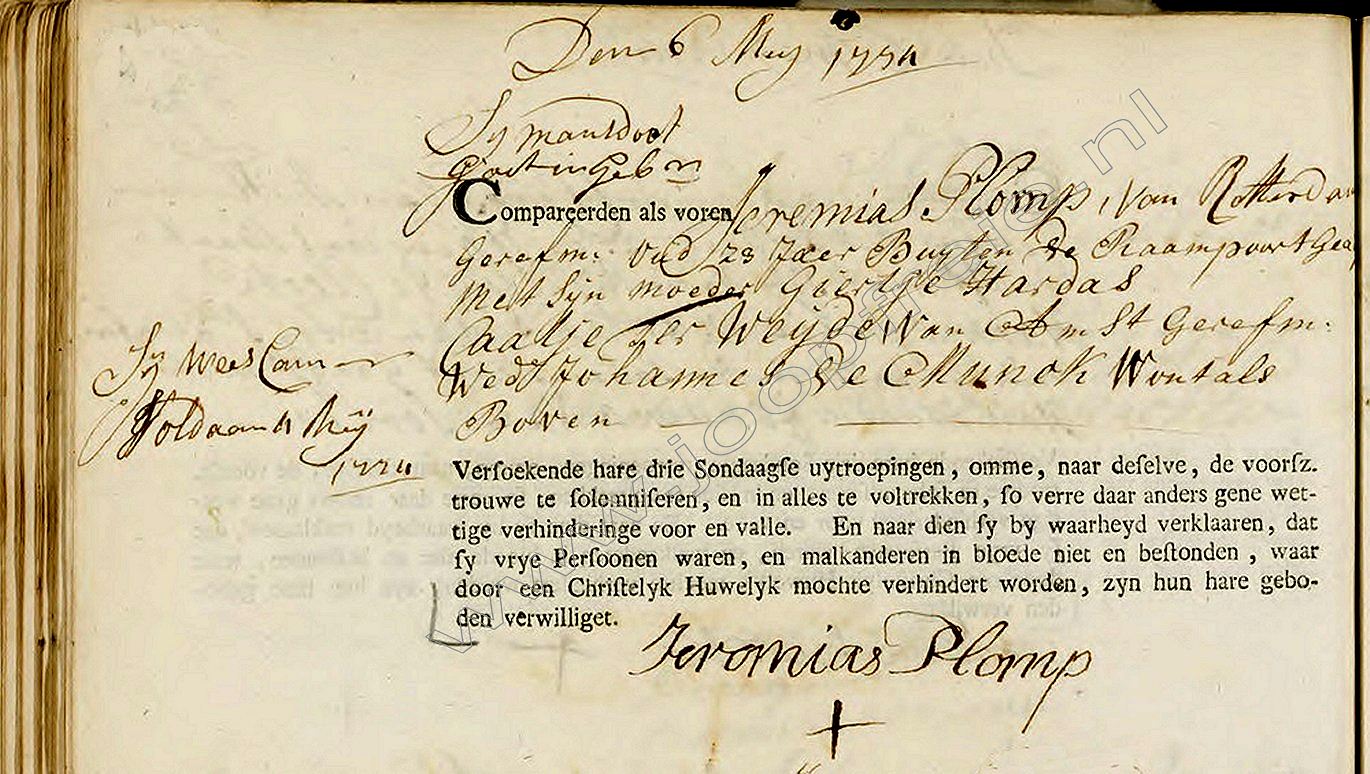 Den 6 Mey 1734
Sy mans doot
goet in geb n
Compareerden als voren Jeremias Plomp, van Rotterdam
Gerefm: Oud 23 Jaer Buyten de Raampoort Gea
Met Syn moeder Giertje Hardas
Caatje ter Weyde Van Amst Gerefm:
Wed Johannes de Munck Wont als
Boven
Sy Wees Cam
Voldaan d Mey
1734
Versoekende hare drie Sondaagse uytroepingen, omme, naar deselve, de voorsz.
trouwe te solemniseren, en in alles te voltrekken, so verre daar anders gene wet-
tige verhinderinge voor en valle. En naar dien sy by waarheyd verklaaren, dat
sy vrye Persoonen waren, en malkanderen in bloede niet en bestonden, waar
door een Christelyk Huwelyk mochte verhindert worden, zyn hun hare gebo-
den verwilliget.
Jeromias Plomp
www.joopfrele.nl